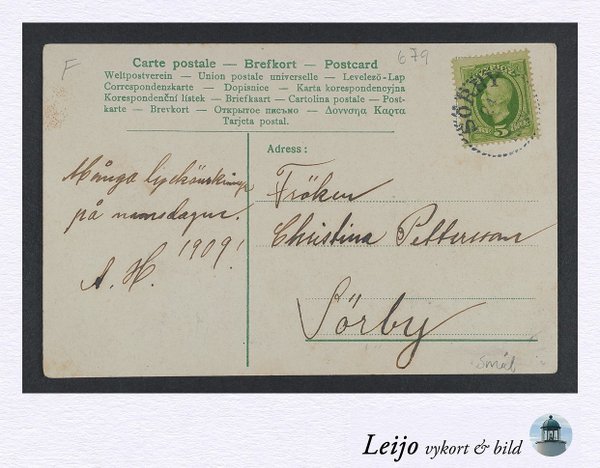 F
679
Carte postale — Brefkort — Postcard
Weltpostverein — Union postale universelle — Levelező-Lap
Correspondenzkarte — Dopisnice — Karta korespondencyjna
Korespondenční lístek — Briefkaart — Cartolina postale — Post-
karte — Brevkort — Открытое письмо — Δοννσηα Καρτα
Tarjeta postal.
5
SÖRBY
Adress:
Många lyckönskningar
på namnsdagen.
1909!
A. H.
Fröken
Christina Pettersson
Sörby
Små
Leijo vykort & bild